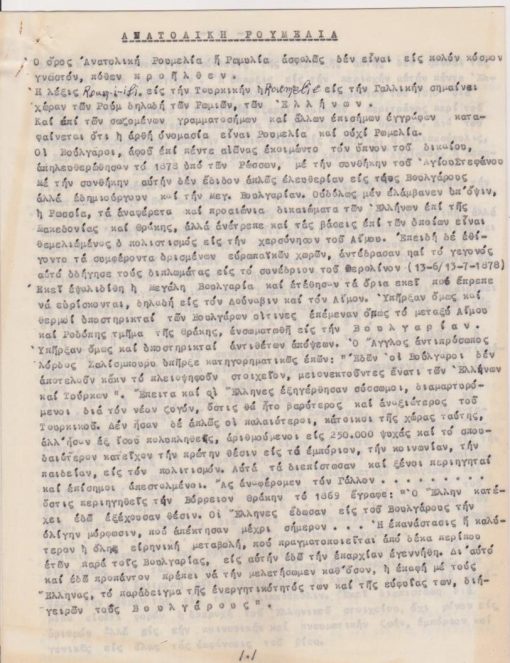 ΑΝΑΤΟΛΙΚΗ ΡΟΥΜΕΛΙΑ
Ὁ ὅρος Ἀνατολική Ρουμελία ἤ Ρωμυλία ἀσφαλῶς δέν εἶναι εἰς πολύν κόσμον
γνωστόν, πόθεν προῆλθεν.
Ἡ λέξις Roum-i-ili εἰς τήν Τουρκικήν ἤ Roumelie εἰς τήν Γαλλικήν σημαίνει
χώραν τῶν Ρούμ δηλαδή τῶν Ρωμιῶν, τῶν Ἑλλήνων.
Καί ἐπί τῶν σωζομένων γραμματοσήμων καί ἄλλων ἐπισήμων ἐγγράφων κατα-
φαίνεται ὅτι ἡ ὀρθή ὀνομασία εἶναι Ρουμελία καί οὐχί Ρωμελία.
Οἱ Βούλγαροι, ἀφοῦ ἐπί πέντε αἰῶνας ἐκοιμῶντο τόν ὕπνον τοῦ δικαίου,
ἀπηλευθερώθησαν τό 1878 ὑπό τῶν Ρώσσων, μέ τήν συνθήκην τοῦ ἉγίουΣτεφάνου
Μέ τήν συνθήκην αὐτήν δέν ἔδιδον ἁπλῶς ἐλευθερίαν εἰς τούς Βουλγάρους
ἀλλά ἐδημιούργουν καί τήν Μεγ. Βουλγαρίαν. Οὐδόλως μέν ἐλάμβανεν ὑπ'ὄψιν,
ἡ Ρωσσία, τά ἀναφαίρετα καί προαιώνια δικαιώματα τῶν Ἑλλήνων ἐπί τῆς
Μακεδονίας καί Θράκης, ἀλλά ἀνέτρεπε καί τάς βάσεις ἐπί τῶν ὁποίων εἶναι
θεμελιωμένος ὁ πολιτισμός εἰς τήν χερσόνησον τοῦ Αἵμου. Ἐπειδή δέ ἐθί-
γοντο τά συμφέροντα ὡρισμένων εὐρωπαϊκῶν χωρῶν, ἀντέδρασαν καί τό γεγονός
αὐτό ὡδήγησε τούς διπλωμάτας εἰς τό συνέδριον τοῦ Βερολίνου (13-6/13-7-1878)
Ἐκεῖ ἐψαλιδίθη ἡ Μεγάλη Βουλγαρία καί ἐτέθησαν τά ὅρια ἐκεῖ πού ἔπρεπε
νά εὑρίσκονται, δηλαδή εἰς τόν Δούναβιν καί τόν Αἷμον. Ὑπῆρξαν ὅμως καί
θερμοί ὑποστηρικταί τῶν Βουλγάρων οἵτινες ἐπέμεναν ὅπως τό μεταξύ Αἵμου
καί Ροδόπης τμῆμα τῆς Θράκης, ἐνσωματωθῆ εἰς τήν Βουλγαρίαν.
Ὑπῆρξαν ὅμως καί ὑποστηρικταί ἀντιθέτων ἀπόψεων. Ὁ Ἄγγλος ἀντιπρόσωπος
λόρδος Σαλίσμπουρυ ὑπῆρξε κατηγορηματικός εἰπών: "Ἐδῶν οἱ Βούλγαροι δέν
ἀποτελοῦν κἄν τό πλειοψηφοῦν στοιχεῖον, μειονεκτοῦντες ἔναντι τῶν Ἑλλήνων
καί Τούρκων". Ἔπειτα καί οἱ Ἕλληνες ἐξηγέρθησαν σύσσωμοι, διαμαρτυρό-
μενοι διά τόν νέον ζυγόν, ὅστις θά ἦτο βαρύτερος καί ἀναξιώτερος τοῦ
Τουρκικοῦ. Δέν ἦσαν δέ ἁπλῶς οἱ παλαιότεροι, κάτοικοι τῆς χώρας ταύτης,
ἀλλ'ἦσαν ἐξ ἴσου πολυπληθεῖς, ἀριθμούμενοι εἰς 250.000 ψυχάς καί τό σπου-
δαιότερον κατεῖχον τήν πρώτην θέσιν εἰς τό ἐμπόριον, τήν κοινωνίαν, τήν
παιδείαν, εἰς τόν πολιτισμόν. Αὐτά τά διεπίστωσαν καί ξένοι περιηγηταί
καί ἐπίσημοι ἀπεσταλμένοι. Ἄς ἀναφέρομεν τόν Γάλλον . . . . . . . . . .
ὅστις περιηγηθεῖς τήν Βόρρειον Θράκην τό 1869 ἔγραφε: "Ὁ Ἕλλην κατέ-
χει ἐδῶ ἐξέχουσαν θέσιν. Οἱ Ἕλληνες ἔδωσαν εἰς τούς Βουλγάρους τήν
ὀλίγην μόρφωσιν, πού ἀπέκτησαν μέχρι σήμερον . . . . Ἡ ἐπανάστασις ἤ καλύ-
τερον ἡ ὅλης εἰρηνική μεταβολή, πού πραγματοποιεῖται ἀπό δέκα περίπου
ἐτῶν παρά τοῖς Βουλγαρίας, εἰς αὐτήν ἐδῶ τήν ἐπαρχίαν ἐγεννήθη. Δι'αὐτό
καί ἐδῶ προπάντων πρέπει νά τήν μελετήσωμεν καθ'ὅσον, ἡ ἐπαφή μέ τούς
Ἕλληνας, τό παράδειγμα τῆς ἐνεργητικότητός των καί τῆς εὐφυίας των, διή-
γειρῶν τούς Βουλγάρους".